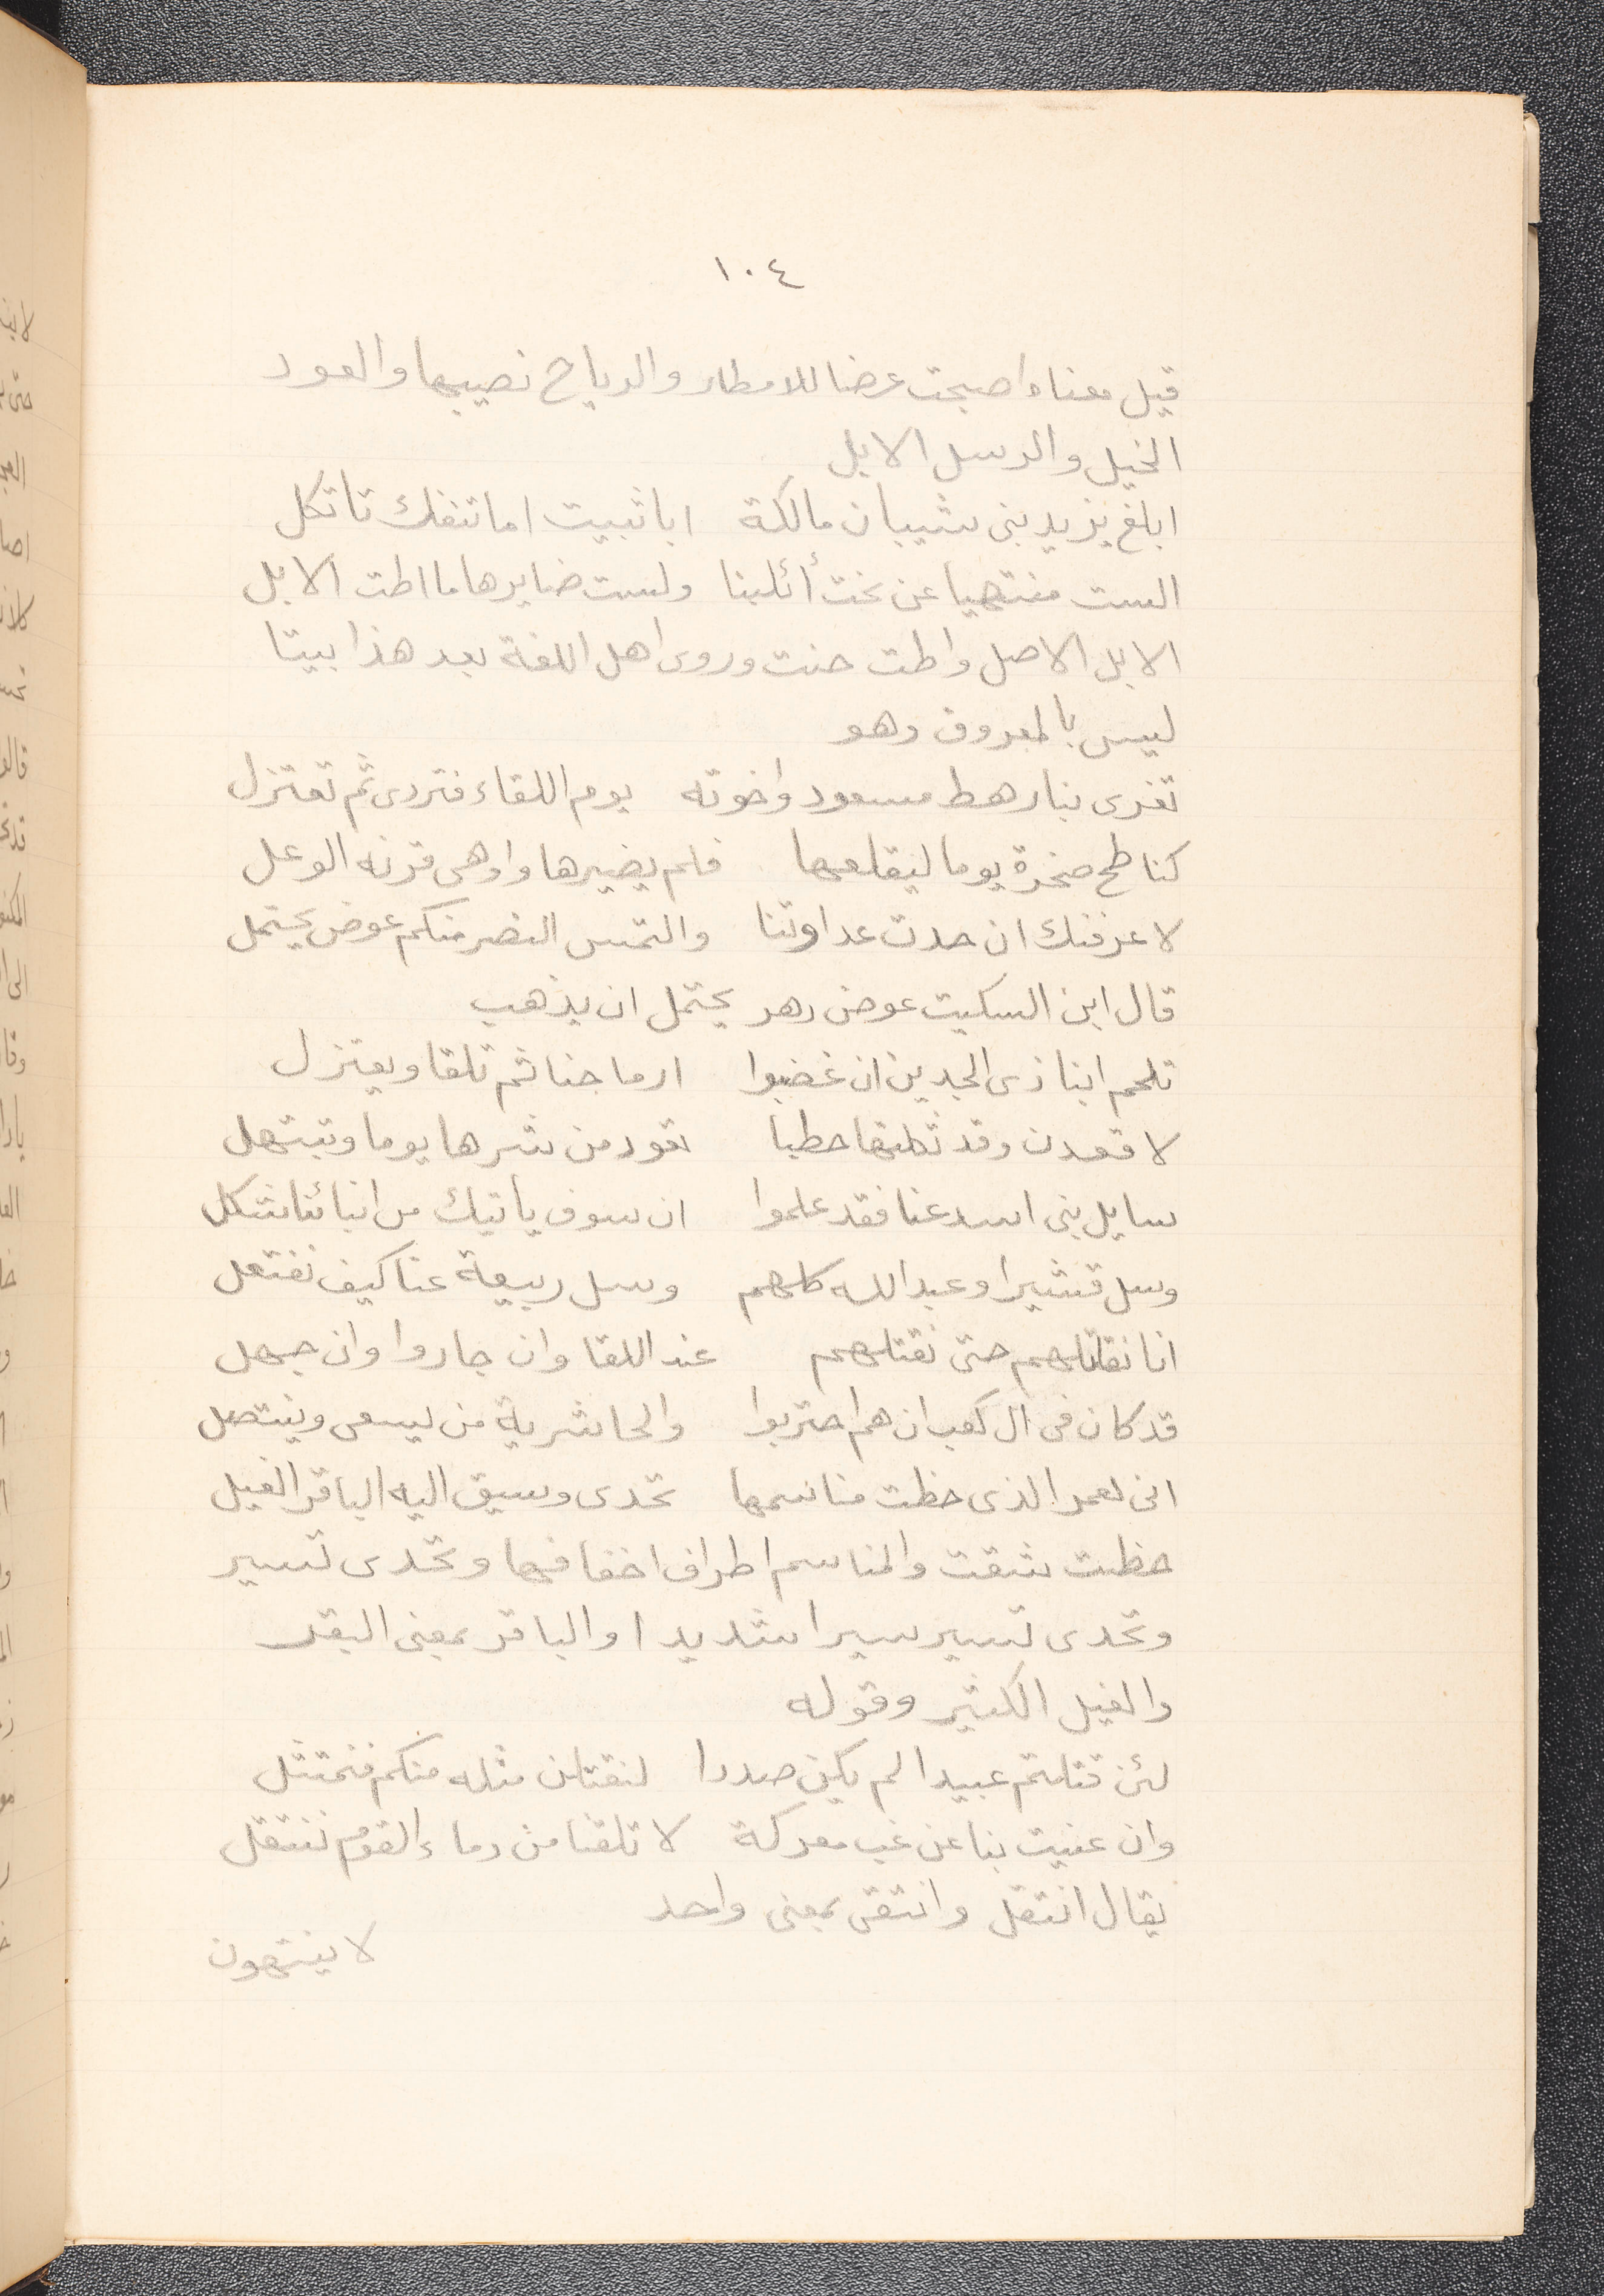 ١٠٤
قيل معناه اصبحت عرضا للامطار والرياح نصيبها والعود
الخيل والرسل الابل
ابلغ يزيد بنى شيبان مالكة   ابا ثبيت اما تنفك تاتكل
الست منتهيا عن نحت أثلبنا   ولست ضايرها ما اطت الابل
الابل الاصل واطت حنت وروى اهل اللغة بعد هذا بيتا
ليس بالمعروف وهو
تغرى بنا رهط مسعود واخوته   يوم اللقاء فتردى ثم تعتزل
كناطح صخرة يوما ليقلعها   فلم يضيرها واوهى قرنه الوعل
لاعرفنك ان حدت عداوتنا   والتمس النصر منكم عوض يحتمل
قال ابن السكيت عوض دهر يحتمل ان يذهب
تلحم ابنا ذى الجدين ان غضبوا   ارماحنا ثم تلقا ويعتزل
لا قعدن وقد ثكلتها حطبا   تعود من شرها يوما وتبتهل
سايل بنى اسد عنا فقد علموا   ان سوف ياتيك من انبائنا شكل
وسل قشيرا وعبد الله كلهم   وسل ربيعة عنا كيف نفتعل
انا نقاتلهم حتى نقتلهم   عند اللقا وان جاروا وان جهل
قد كان فى ال كعب ان هم احتربوا   والحاشرية من يسعى وينتصل
انى لعمر الذى حظت مناسمها   تحدى وسيق اليه الباقر الغيل
حظت شقت والمناسم اطراف اخفافها وتحدى تسير
وتحدى تسير سيرا شديدا والباقر بمعنى البقر
والغيل الكثير وقوله
لئن قتلتم عبيدا لم يكن صددا   لنقتلن مثله منكم فنمتثل
وان عنيت بنا عن غب معركة   لا تلقنا من دماء القوم ننتقل
يقال انتقل وانتقى بمعنى واحد
لا ينتهون